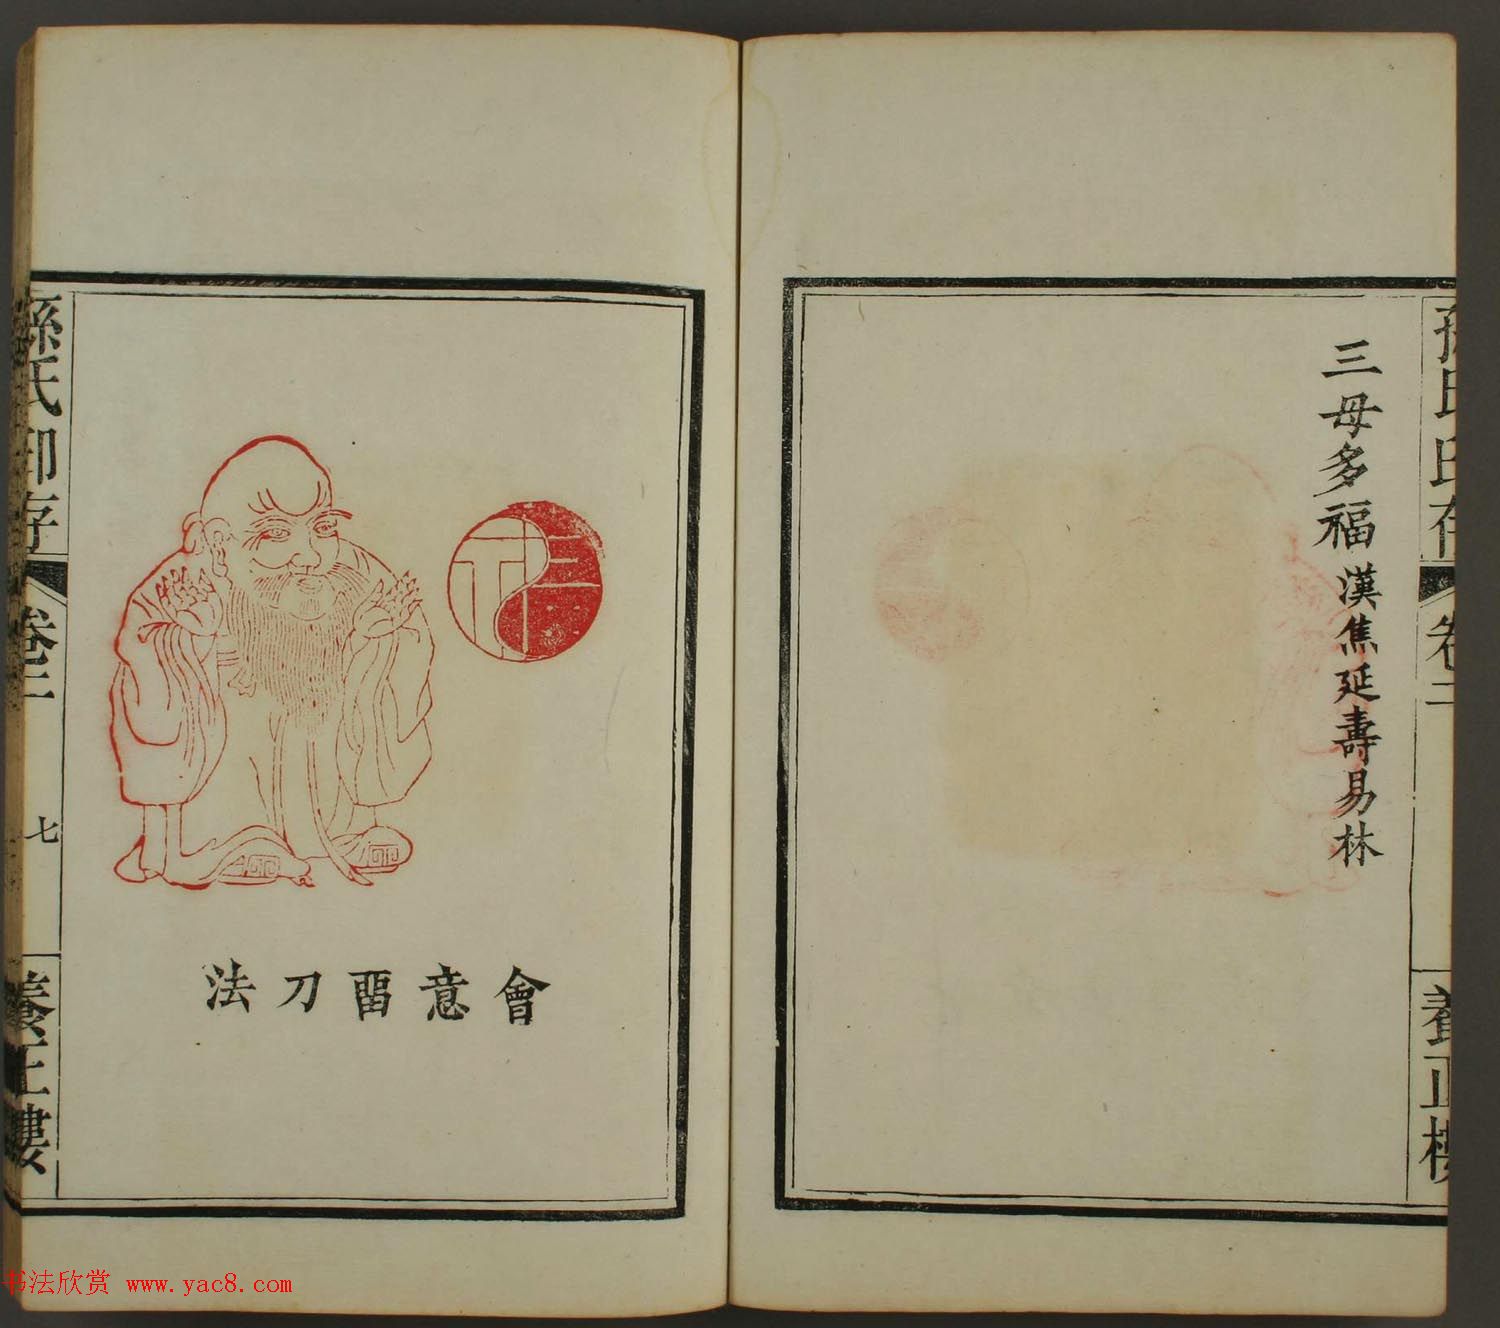 三毋多福 漢焦延壽易林
孫氏印存
卷二
養正樓
會意畱刀法
孫氏印存
卷二
七
養正樓
书法欣赏 www.yac8.com